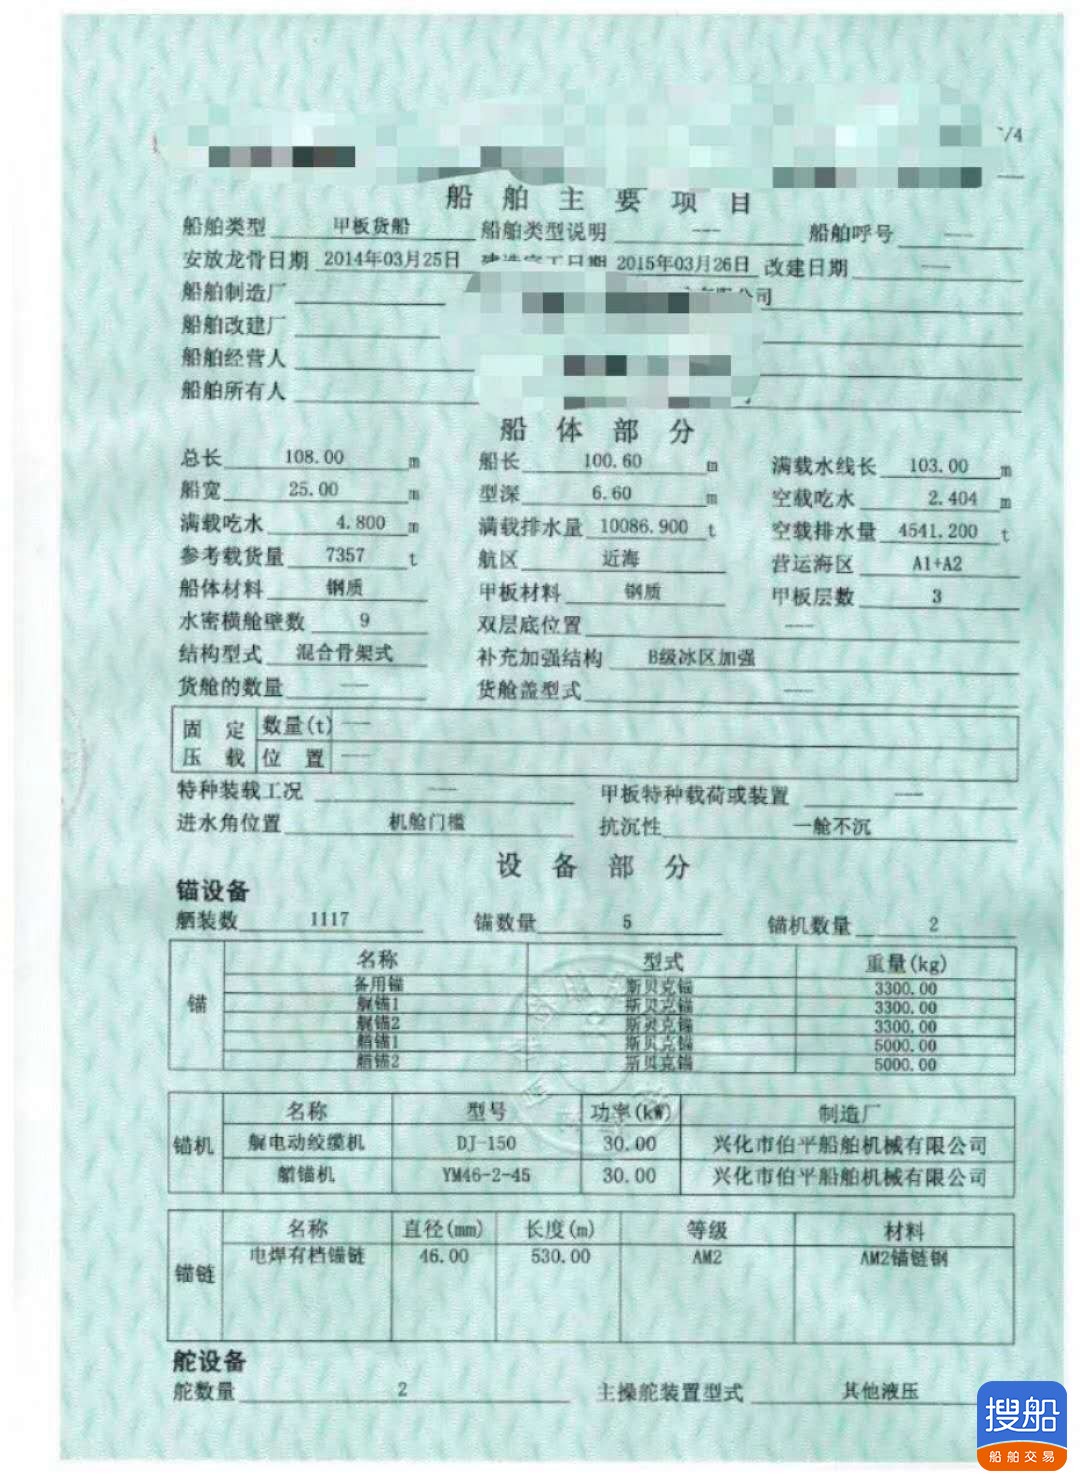 /4
船舶主要项目
船舶类型 甲板货船 船舶类型说明 --- 船舶呼号 ---
安放龙骨日期 2014年03月25日 建造完工日期 2015年03月26日 改建日期 ---
船舶制造厂 有限公司
船舶改建厂
船舶经营人
船舶所有人
船体部分
总长 108.00 m 船长 100.60 m 满载水线长 103.00 m
船宽 25.00 m 型深 6.60 m 空载吃水 2.404 m
满载吃水 4.800 m 满载排水量 10086.900 t 空载排水量 4541.200 t
参考载货量 7357 t 航区 近海 营运海区 A1+A2
船体材料 钢质 甲板材料 钢质 甲板层数 3
水密横舱壁数 9 双层底位置 ---
结构型式 混合骨架式 补充加强结构 B级冰区加强
货舱的数量 --- 货舱盖型式 ---
固定 数量(t) ---
压载 位置 ---
特种装载工况 --- 甲板特种载荷或装置 ---
进水角位置 机舱门槛 抗沉性 一舱不沉
设备部分
锚设备
舾装数 1117 锚数量 5 锚机数量 2
锚 名称 型式 重量(kg)
备用锚 斯贝克锚 3300.00
艉锚1 斯贝克锚 3300.00
艉锚2 斯贝克锚 3300.00
艏锚1 斯贝克锚 5000.00
艏锚2 斯贝克锚 5000.00
锚机 名称 型号 功率(kW) 制造厂
艉电动绞缆机 DJ-150 30.00 兴化市伯平船舶机械有限公司
艏锚机 YM46-2-45 30.00 兴化市伯平船舶机械有限公司
锚链 名称 直径(mm) 长度(m) 等级 材料
电焊有档锚链 46.00 530.00 AM2 AM2锚链钢
舵设备
舵数量 2 主操舵装置型式 其他液压
搜船
船舶交易